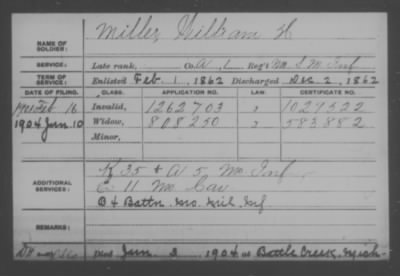 NAME OF SOLDIER: Miller, William H
SERVICE: Late rank, Co. A, 1 Reg't Mo. S. M. Inf
TERM OF SERVICE: Enlisted Feb. 1, 1862 Discharged Dec. 2, 1862
DATE OF FILING. CLASS. APPLICATION NO. LAW. CERTIFICATE NO.
Feb 16 Invalid, 1262703 1027522
1904 Jan. 10 Widow, 808250 583882
Minor,
ADDITIONAL SERVICES: K 35 & A 5 Mo. Inf
E 11 Mo. Cav
B 4 Battn. Mo. Mil. Inf
REMARKS:
Died Jan. 3, 1904 at Battle Creek, Mich.